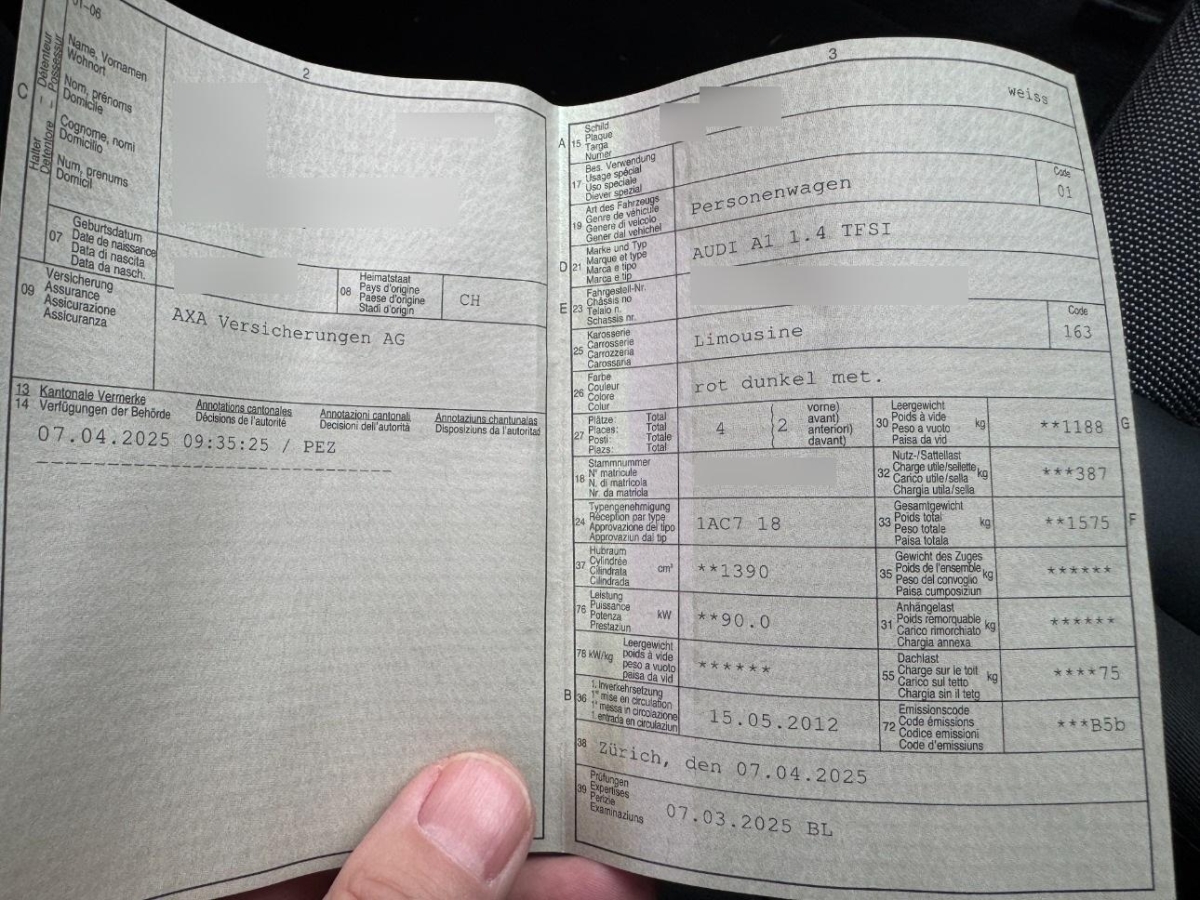 2
01-06
C
Halter – Détenteur
Detentore – Possessur
Name, Vornamen
Wohnort
Nom, prénoms
Domicile
Cognome, nomi
Domicilio
Num, prenums
Domicil
07
Geburtsdatum
Date de naissance
Data di nascita
Data da nasch.
08
Heimatstaat
Pays d'origine
Paese d'origine
Stadi d'origin
CH
09
Versicherung
Assurance
Assicurazione
Assicuranza
AXA Versicherungen AG
13 Kantonale Vermerke
14 Verfügungen der Behörde
Annotations cantonales
Décisions de l'autorité
Annotazioni cantonali
Decisioni dell'autorità
Annotaziuns chantunalas
Disposiziuns da l'autoritad
07.04.2025 09:35:25 / PEZ
3
weiss
A 15
Schild
Plaque
Targa
Numer
17
Bes. Verwendung
Usage spécial
Uso speciale
Diever spezial
19
Art des Fahrzeugs
Genre de véhicule
Genere di veicolo
Gener dal vehichel
Personenwagen
Code
01
D 21
Marke und Typ
Marque et type
Marca e tipo
Marca e tip
AUDI A1 1.4 TFSI
E 23
Fahrgestell-Nr.
Châssis no
Telaio n.
Schassis nr.
25
Karosserie
Carrosserie
Carrozzeria
Carossaria
Limousine
Code
163
26
Farbe
Couleur
Colore
Colur
rot dunkel met.
27
Plätze Total
Places: Total
Posti: Totale
Plazs: Total
4
2
vorne)
avant)
anteriori)
davant)
30
Leergewicht
Poids à vide
Peso a vuoto
Paisa da vid
kg
**1188
G
18
Stammnummer
N° matricule
N. di matricola
Nr. da matricla
32
Nutz-/Sattellast
Charge utile/sellette
Carico utile/sella
Chargia utila/sella
kg
***387
24
Typengenehmigung
Réception par type
Approvazione del tipo
Approvaziun dal tip
1AC7 18
33
Gesamtgewicht
Poids total
Peso totale
Paisa totala
kg
**1575
F
37
Hubraum
Cylindrée
Cilindrata
Cilindrada
cm³
**1390
35
Gewicht des Zuges
Poids de l'ensemble
Peso del convoglio
Paisa cumposiziun
kg
******
76
Leistung
Puissance
Potenza
Prestaziun
kW
**90.0
31
Anhängelast
Poids remorquable
Carico rimorchiato
Chargia annexa
kg
******
78 kW/kg
Leergewicht
poids à vide
peso a vuoto
paisa da vid
******
55
Dachlast
Charge sur le toit
Carico sul tetto
Chargia sin il tetg
kg
****75
B 36
1. Inverkehrsetzung
1re mise en circulation
1a messa in circolazione
1. entrada en circulaziun
15.05.2012
72
Emissionscode
Code émissions
Codice emissioni
Code d'emissiuns
***B5b
38
Zürich, den 07.04.2025
39
Prüfungen
Expertises
Perizie
Examinaziuns
07.03.2025 BL